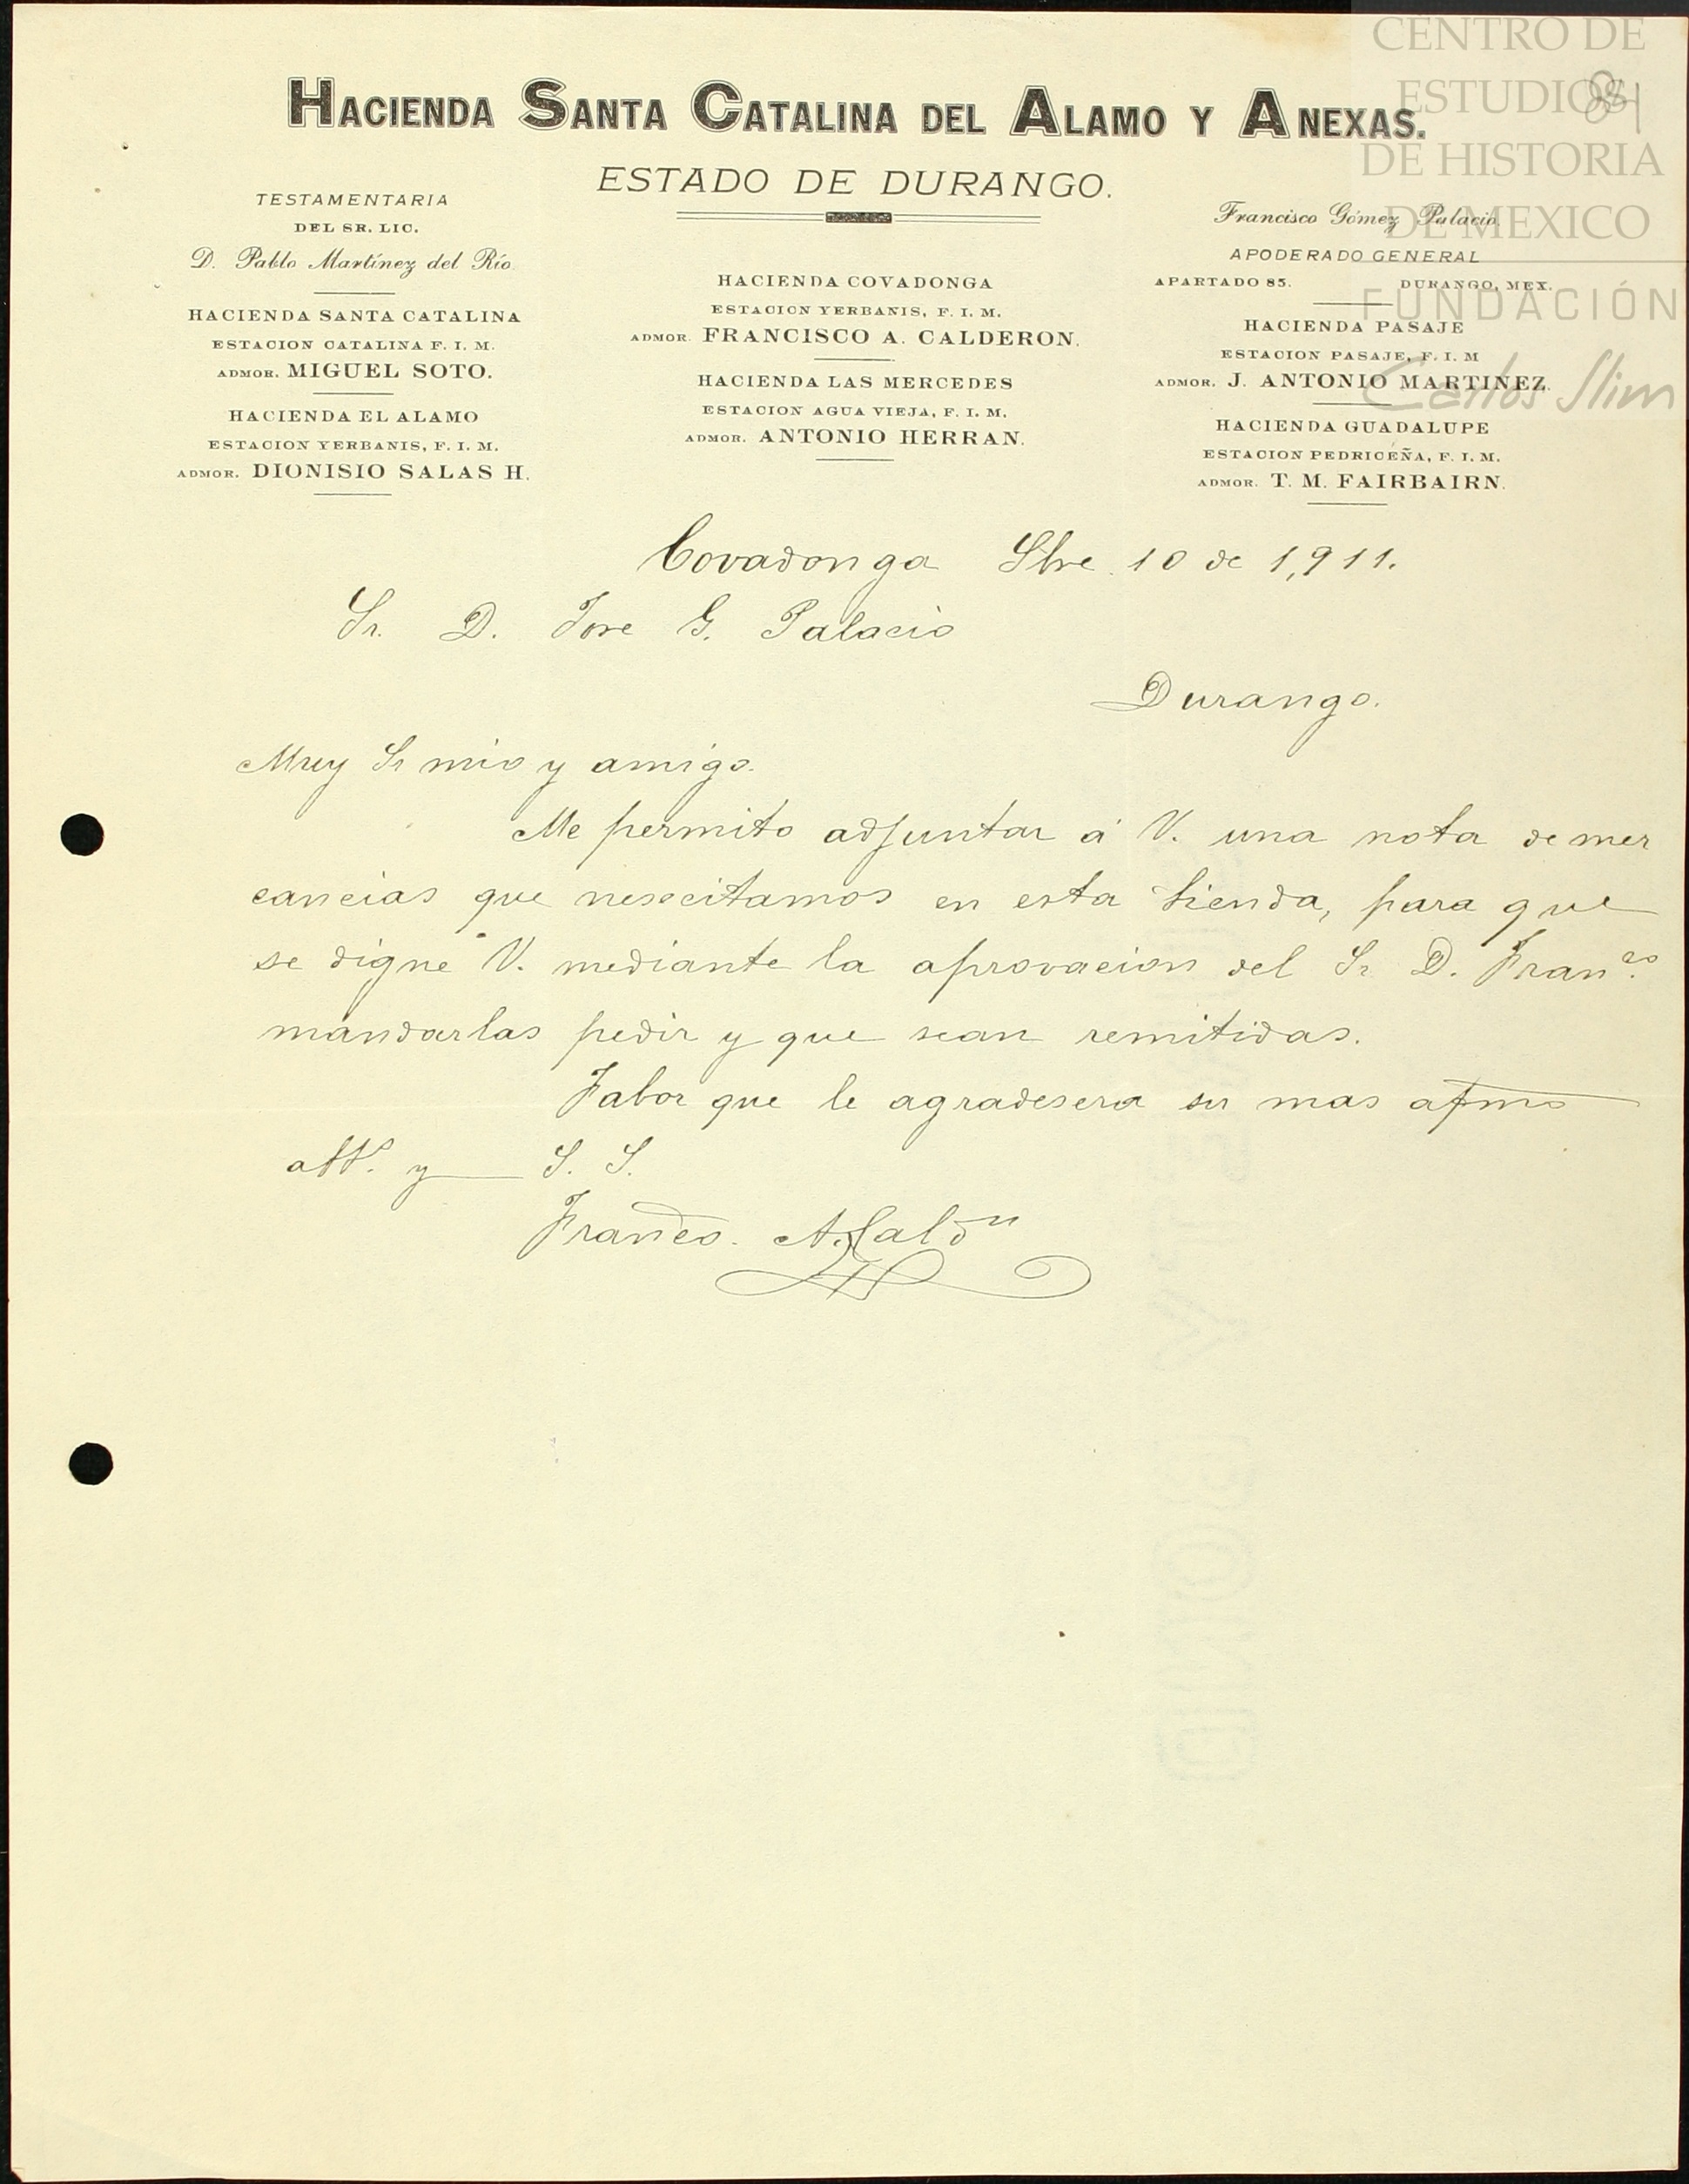 CENTRO DE
ESTUDIOS
DE HISTORIA
DE MEXICO
FUNDACIÓN
Carlos Slim
HACIENDA SANTA CATALINA DEL ALAMO Y ANEXAS.
ESTADO DE DURANGO.
TESTAMENTARIA
DEL SR. LIC.
D. Pablo Martínez del Río
HACIENDA SANTA CATALINA
ESTACION CATALINA F. I. M.
ADMOR. MIGUEL SOTO.
HACIENDA EL ALAMO
ESTACION YERBANIS, F. I. M.
ADMOR. DIONISIO SALAS H.
HACIENDA COVADONGA
ESTACION YERBANIS, F. I. M.
ADMOR. FRANCISCO A. CALDERON.
HACIENDA LAS MERCEDES
ESTACION AGUA VIEJA, F. I. M.
ADMOR. ANTONIO HERRAN.
Francisco Gómez Palacio
APODERADO GENERAL
APARTADO 85. DURANGO, MEX.
HACIENDA PASAJE
ESTACION PASAJE, F. I. M
ADMOR. J. ANTONIO MARTINEZ.
HACIENDA GUADALUPE
ESTACION PEDRICEÑA, F. I. M.
ADMOR. T. M. FAIRBAIRN.
Covadonga Sbre. 10 de 1,911.
Sr. D. Jose G. Palacio
Durango.
Muy Sr mio y amigo.
Me permito adjuntar á V. una nota de mer
cancias que nesecitamos en esta tienda, para que
se digne V. mediante la aprovacion del Sr. D. Franco.
mandarlas pedir y que sean remitidas.
Fabor que le agradesera su mas afmo
att. y S. S.
Franco. A. Caldn